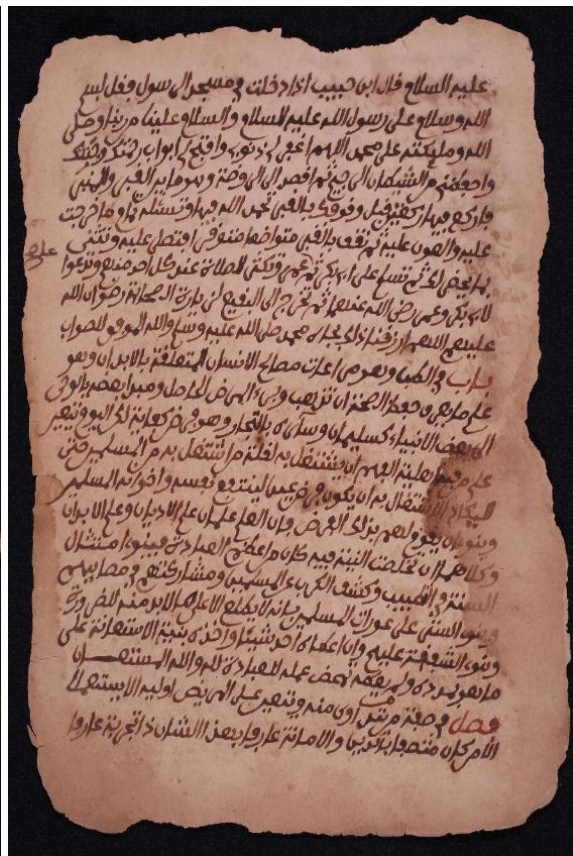 عليه السلام قال ابن حبيب اذا دخلت مسجد الرسول فقل بسم
الله وسلام على رسول الله عليه السلام والسلام علينا من ربنا وصلى
الله ومليكته على محمد اللهم اغفر لي ذنوبي وافتح لي ابواب رحمتك وجنتك
واحفظني من الشيطان الرجيم ثم اقصد الى الروضة وهو ما بين القبر والمنبر
فاركع فيها ركعتين قبل وقوفك بالقبر تحمد الله فيها وتسئله ما خرجت
عليه والعون عليه ثم تقف بالقبر متواضعا فتصلي عليه وتثني
بما يحضر ثم تسلم على ابي بكر وعمر وتكثر الصلاة وتدعوا
لابي بكر وعمر رضي الله عنهما ثم تخرج الى البقيع لزيارة الصحابة رضوان الله
عليهم اللهم ارزقنا ذلك بجاه محمد صلى الله عليه وسلم والله الموفق للصواب
باب في الطب وهو من مصالح الانسان المتعلقة بالابدان وهو
علم ما به حفظ الصحة ان تذهب وبرء المرض الحاصل بالوحي
الى بعض الانبياء كسليمان بالتجارب وهو فرض كفاية لكن اليوم
على من فيه اهلية الفهم ان يشتغل به لقلة من اشتغل به من المسلمين حتى
الاشتغال به ان يكون فرض عين لينتفع نفسه واخوانه المسلمين
وينوي بذلك الفرض فان العلم علمان علم الاديان وعلم الابدان
وكلاهما ان خلصت النية فيه كان من اعظم العبادة فينوي امتثال
السنة في التطبيب وكشف الكرب عن المسلمين ومشاركتهم في مصايبهم
وينوي الستر على عورات المسلمين لانه لا يطلع الا على ما لابد منه للضرورة
وينوي الشفقة عليهم وان اعطاه احد شيئا واخذه بنية الاستعانة على
ما هو بصدده ولم يقصد عمله للعبادة لله والله المستعان
فصل في صفة من يتداوى منه ويتعين على المريض
الا من كان متصفا بالدين والامانة عارفا بهذا الشان ذا تجربة عارفا